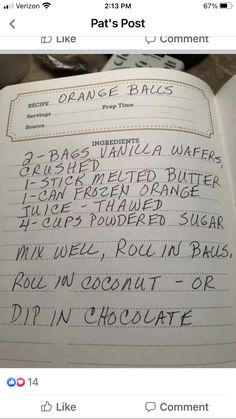 Verizon 2:13 PM 67%
Pat's Post
Like Comment
RECIPE ORANGE BALLS
Servings Prep Time
Source
INGREDIENTS
2-BAGS VANILLA WAFERS,
CRUSHED
1-STICK MELTED BUTTER
1-CAN FROZEN ORANGE
JUICE - THAWED
4-CUPS POWDERED SUGAR
MIX WELL, ROLL IN BALLS,
ROLL IN COCONUT - OR
DIP IN CHOCOLATE
14
Like Comment
Like Comment